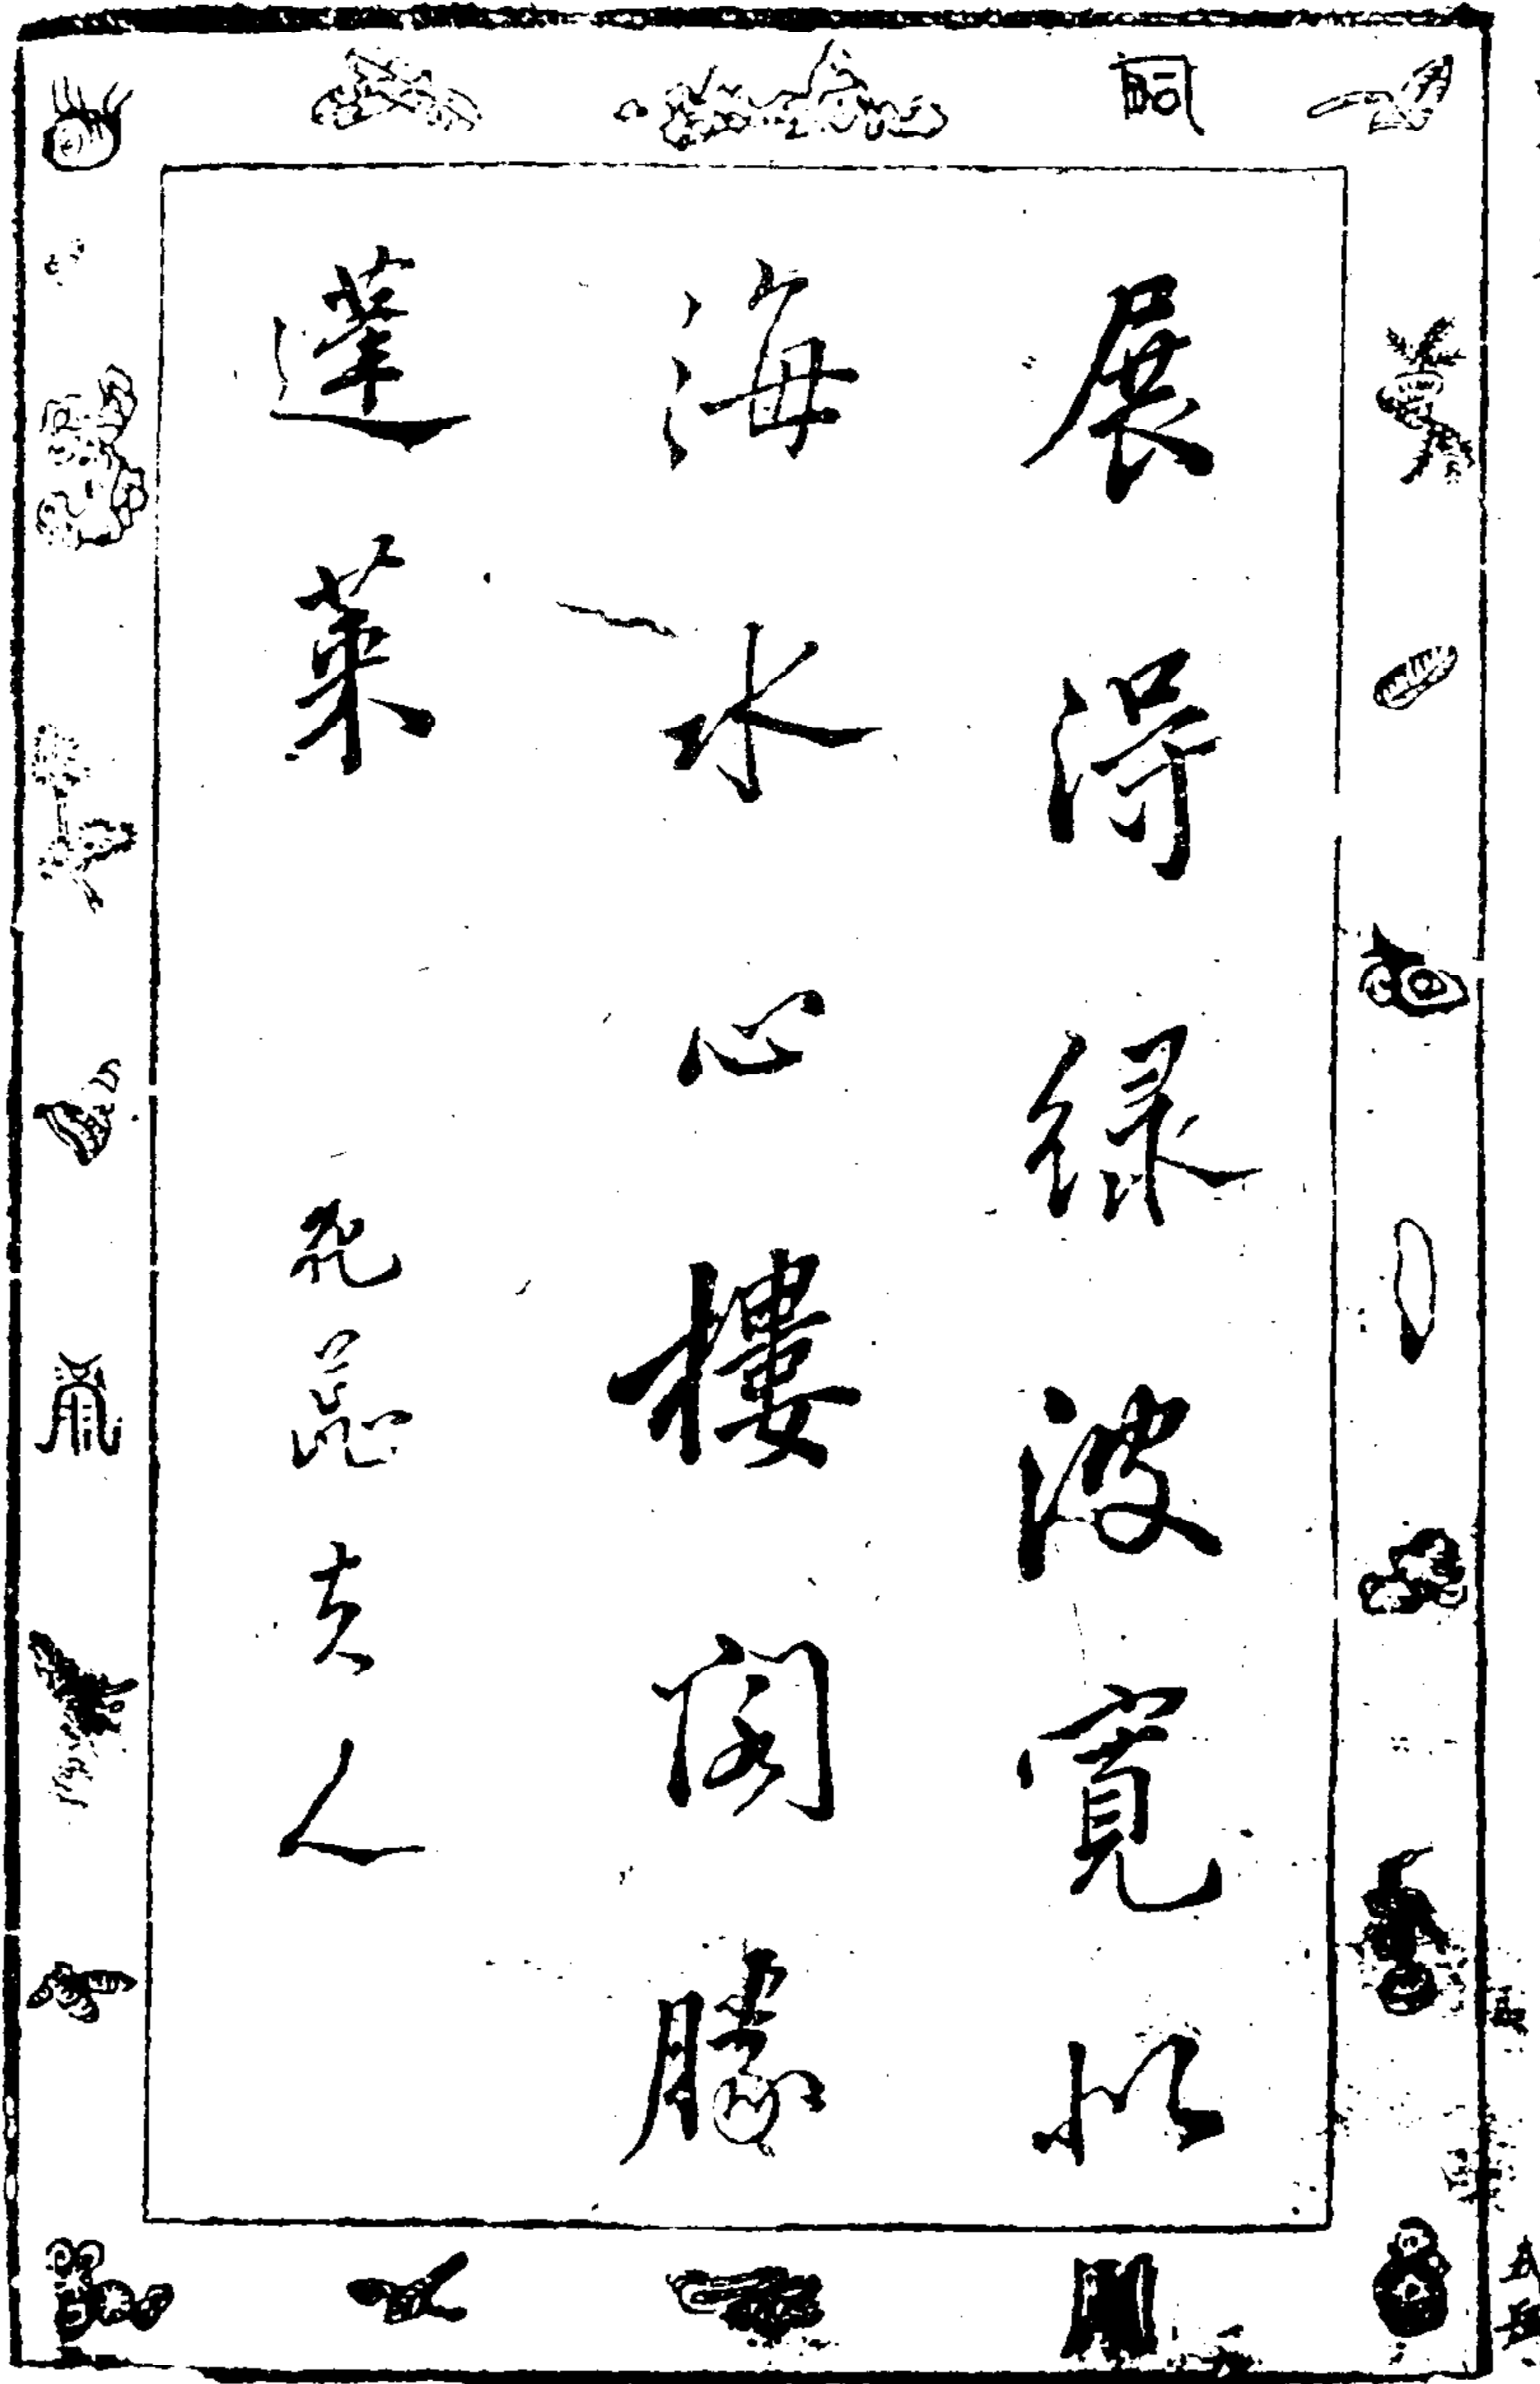 展得綠波寬似
海水心樓閣勝
蓬萊
花蕊夫人